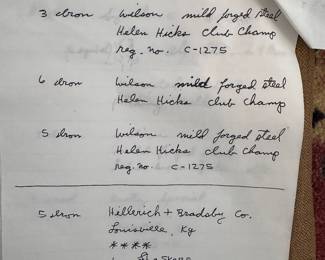 3 iron Wilson mild forged steel
Helen Hicks Club Champ
reg. no. C-1275
6 iron Wilson mild forged steel
Helen Hicks Club Champ
5 iron Wilson mild forged steel
Helen Hicks Club Champ
reg. no. C-1275
5 iron Hillerich + Bradsby Co.
Louisville, Ky
****